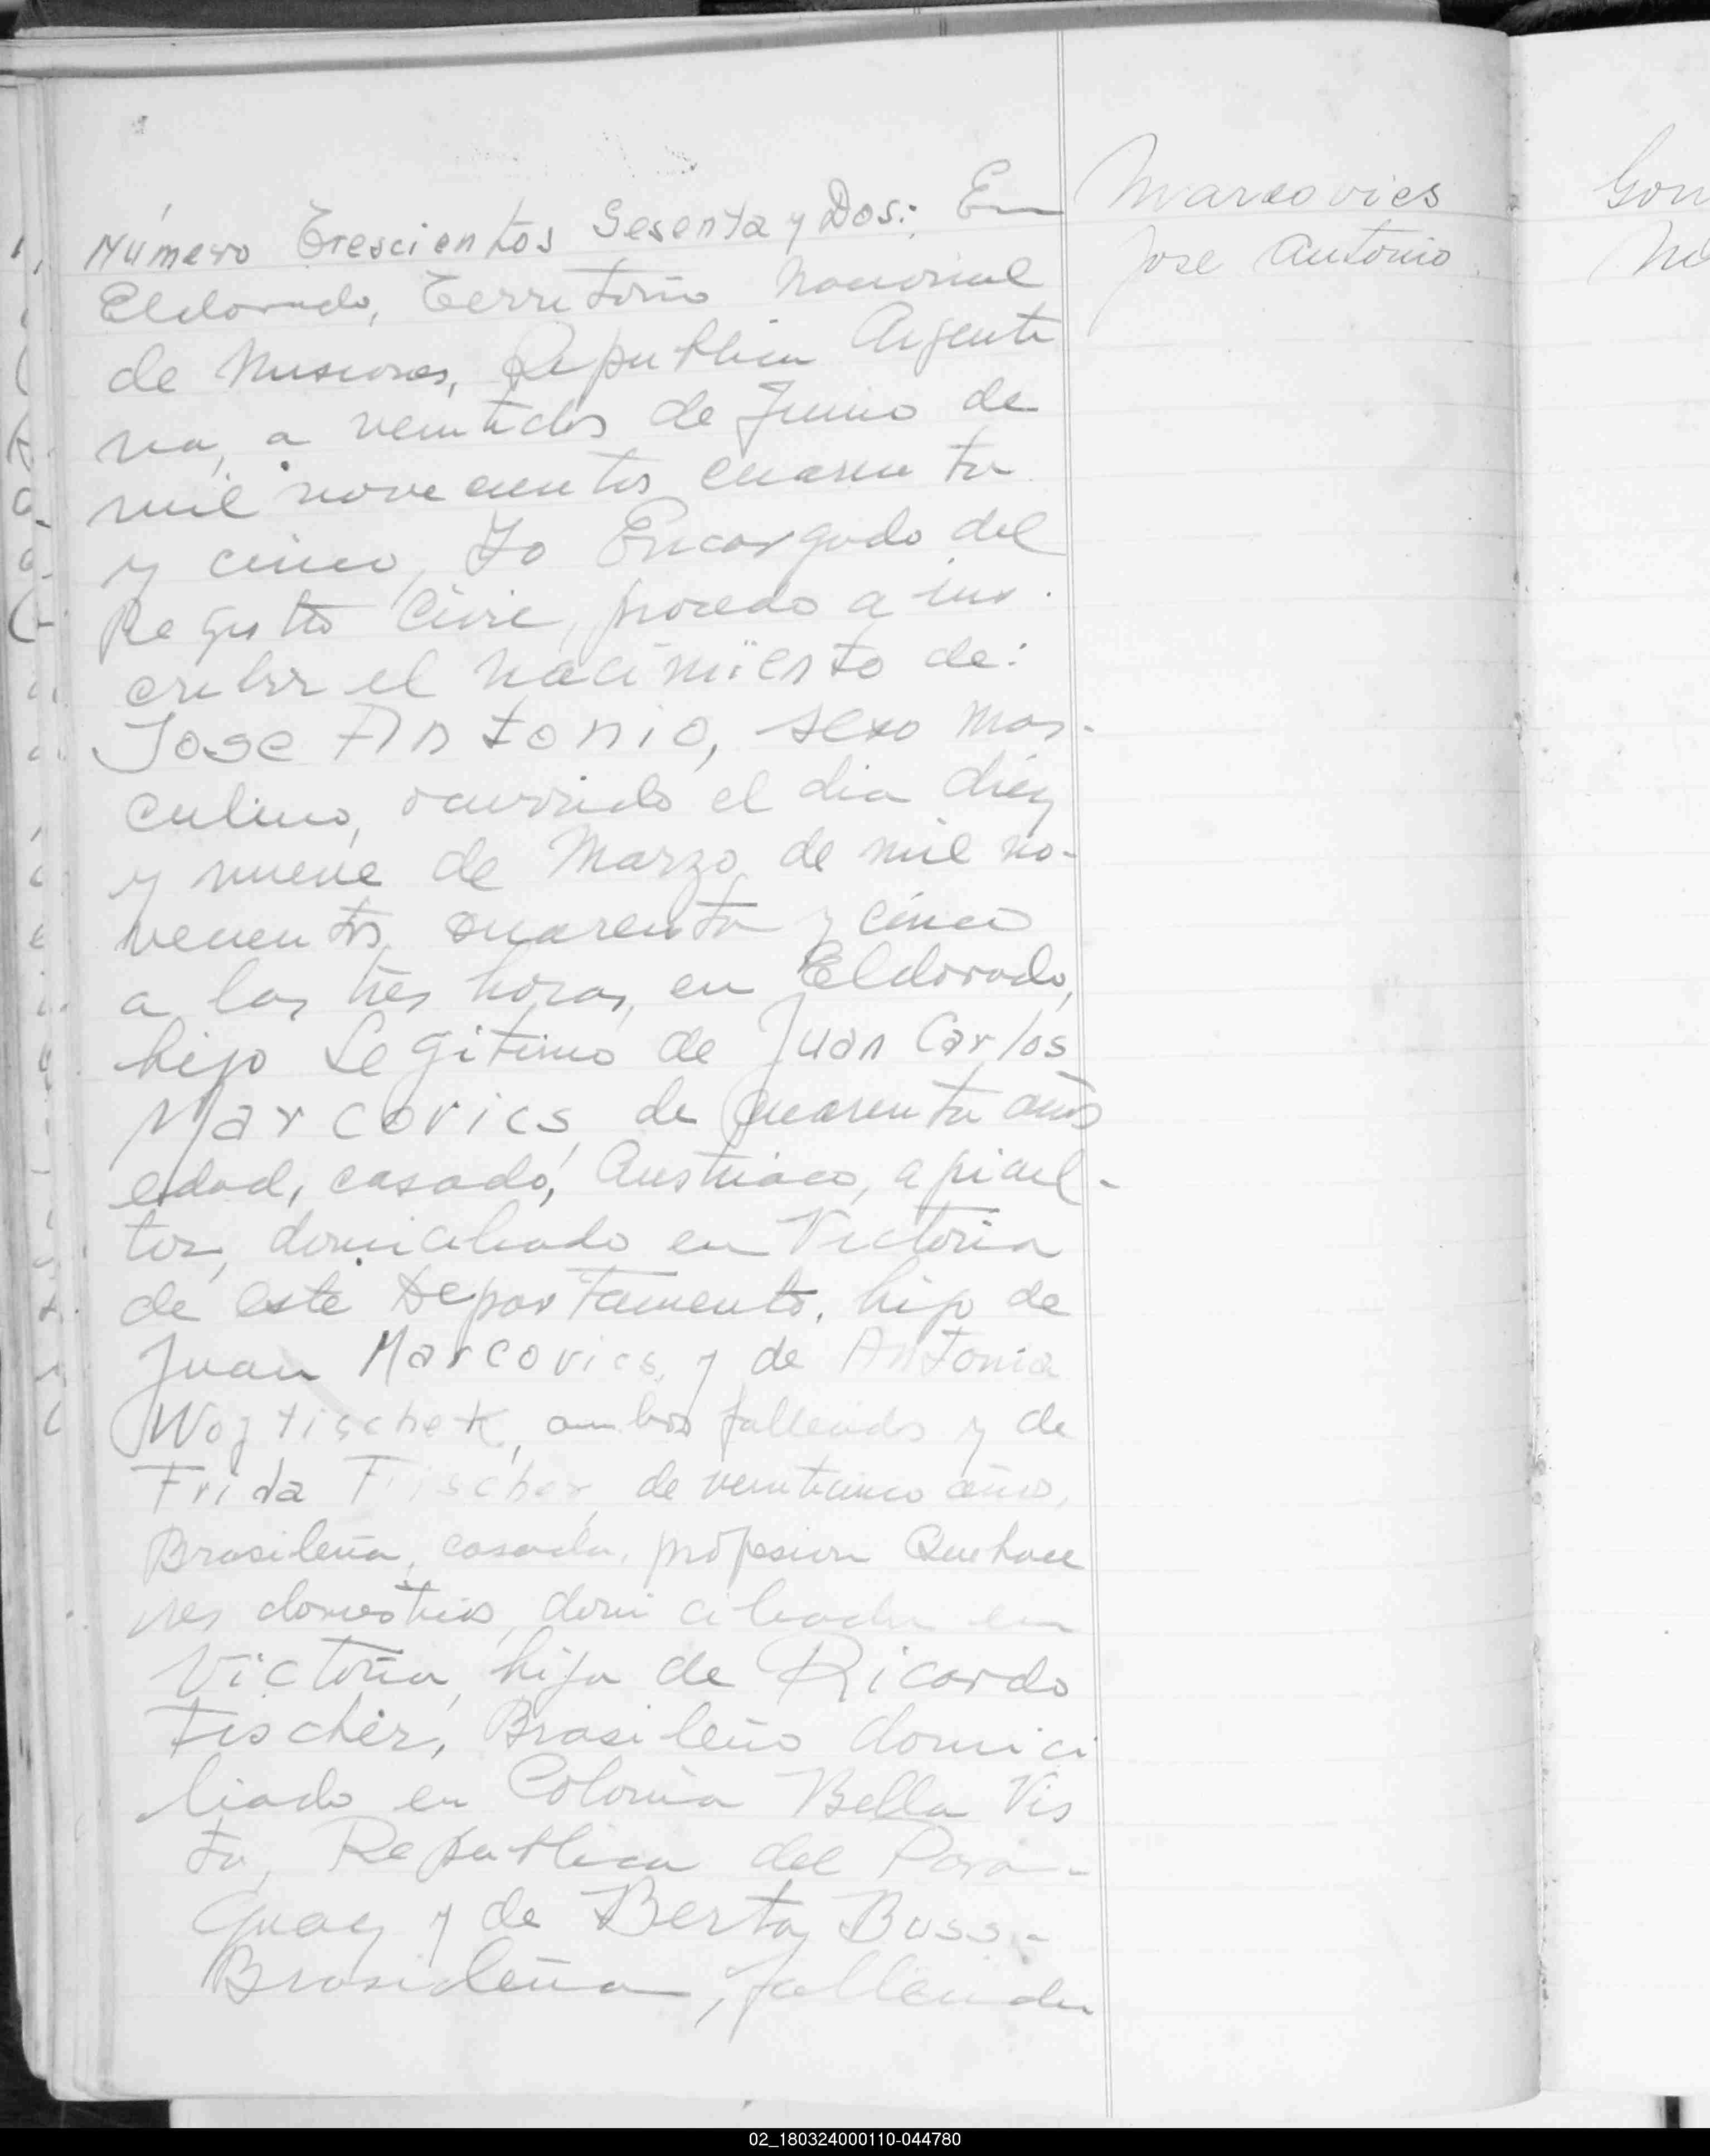 Número Trescientos Sesenta y Dos: En
Eldorado, Territorio Nacional
de Misiones, Republica Argenti
na, a veintidos de Junio de
mil novecientos cuarenta
y cinco, Yo Encargado del
Registro Civil, procedo a ins-
cribir el nacimiento de:
Jose Antonio, sexo mas-
culino, ocurrido el dia diez
y nueve de Marzo de mil no-
vecientos cuarenta y cinco
a las tres horas, en Eldorado,
hijo Legitimo de Juan Carlos
Marcovics, de cuarenta años
edad, casado, Austriaco, apicul-
tor, domiciliado en Victoria
de este Departamento, hijo de
Juan Marcovics, y de Antonia
Wojtischek, ambos fallecidos y de
Frida Fischer, de veinticinco años,
Brasileña, casada, profesion Quehace
res domesticos, domiciliada en
Victoria, hija de Ricardo
Fischer, Brasileño domici
liado en Colonia Bella Vis
ta, Republica del Para-
guay y de Berta Buss-
Brasileña, fallecida
Marcovics
Jose Antonio
02_180324000110-044780